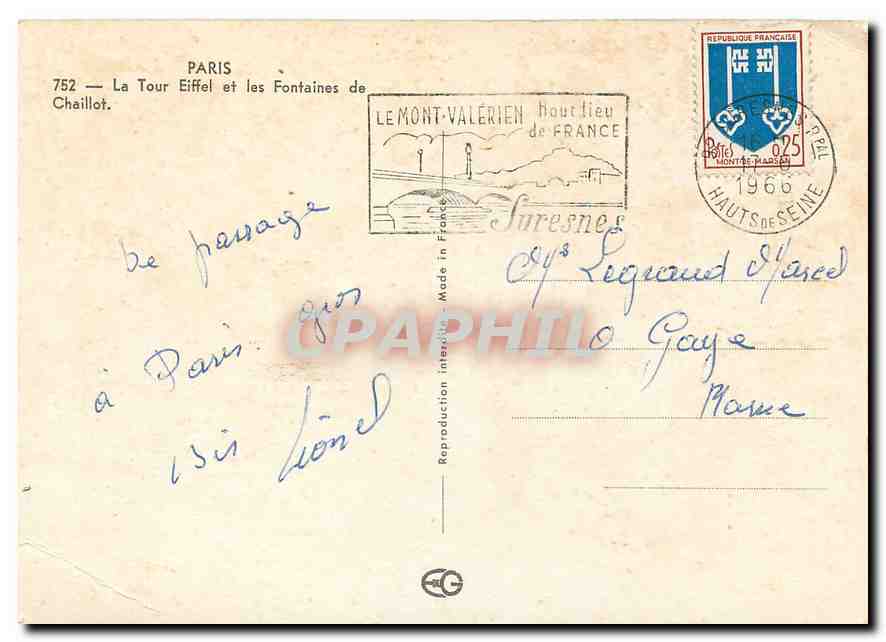 PARIS
752 — La Tour Eiffel et les Fontaines de
Chaillot.
LE MONT-VALÉRIEN haut lieu
de FRANCE
Suresnes
REPUBLIQUE FRANÇAISE
POSTES 0,25
MONT-DE-MARSAN
SURESNES P.PAL
1966
HAUTS DE SEINE
De passage
à Paris. gros
bis Lionel
Reproduction interdite Made in France
Legrand Marcel
Gaye
Marne
CPAPHIL
EG